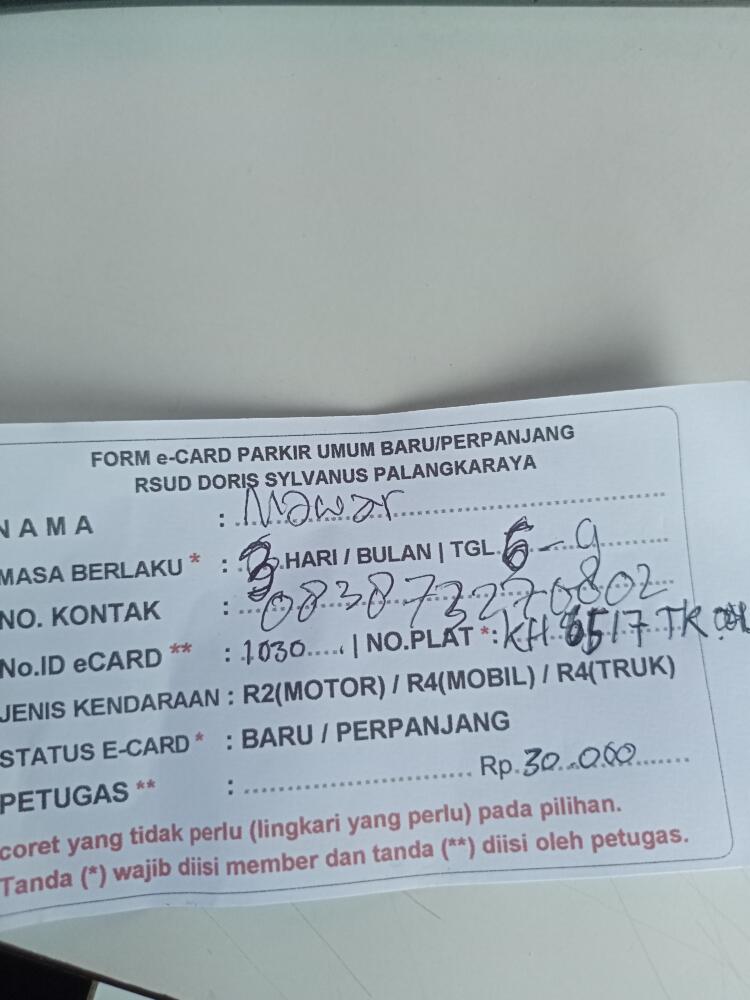 FORM e-CARD PARKIR UMUM BARU/PERPANJANG
RSUD DORIS SYLVANUS PALANGKARAYA
NAMA : Mawar
MASA BERLAKU * : 3 HARI / BULAN | TGL 6 - 9
NO. KONTAK : 083873270802
No.ID eCARD ** : 1030 | NO.PLAT *: KH 6517 TK
JENIS KENDARAAN : R2(MOTOR) / R4(MOBIL) / R4(TRUK)
STATUS E-CARD * : BARU / PERPANJANG
PETUGAS ** : Rp. 30.000
coret yang tidak perlu (lingkari yang perlu) pada pilihan.
Tanda (*) wajib diisi member dan tanda (**) diisi oleh petugas.